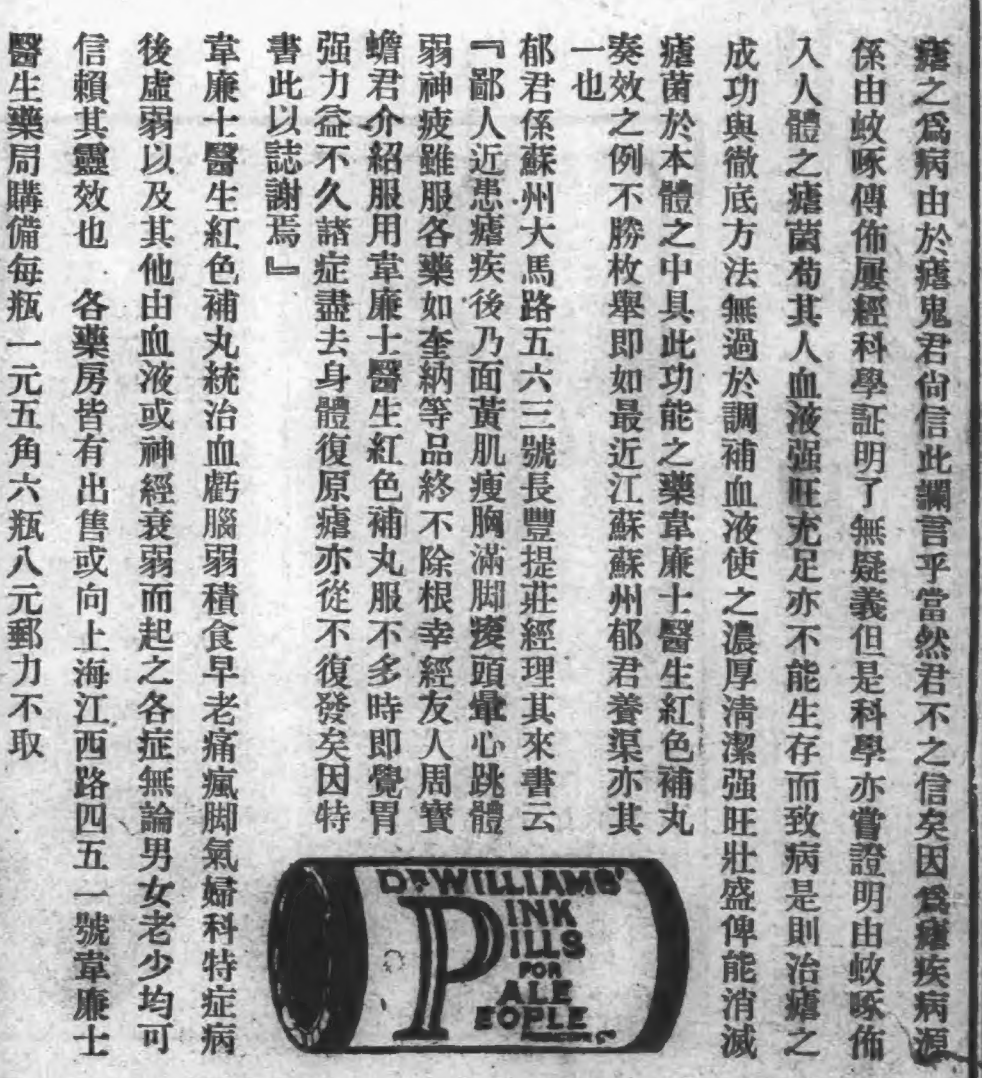 瘧之爲病由於瘧鬼君尙信此讕言乎當然君不之信矣因爲瘧疾病源
係由蚊啄傳佈屢經科學証明了無疑義但是科學亦嘗證明由蚊啄佈
入人體之瘧菌苟其人血液强旺充足亦不能生存而致病是則治瘧之
成功與徹底方法無過於調補血液使之濃厚淸潔强旺壯盛俾能消滅
瘧菌於本體之中具此功能之藥韋廉士醫生紅色補丸
奏效之例不勝枚舉即如最近江蘇蘇州郁君養渠亦其
一也
郁君係蘇州大馬路五六三號長豐提莊經理其來書云
『鄙人近患瘧疾後乃面黃肌瘦胸滿脚痠頭暈心跳體
弱神疲雖服各藥如奎納等品終不除根幸經友人周寶
蟾君介紹服用韋廉士醫生紅色補丸服不多時即覺胃
强力益不久諸症盡去身體復原瘧亦從不復發矣因特
書此以誌謝焉』
韋廉士醫生紅色補丸統治血虧腦弱積食早老痛瘋脚氣婦科特症病
後虛弱以及其他由血液或神經衰弱而起之各症無論男女老少均可
信賴其靈效也 各藥房皆有出售或向上海江西路四五一號韋廉士
醫生藥局購備每瓶一元五角六瓶八元郵力不取
DR WILLIAMS'
PINK
PILLS
FOR
PALE
PEOPLE